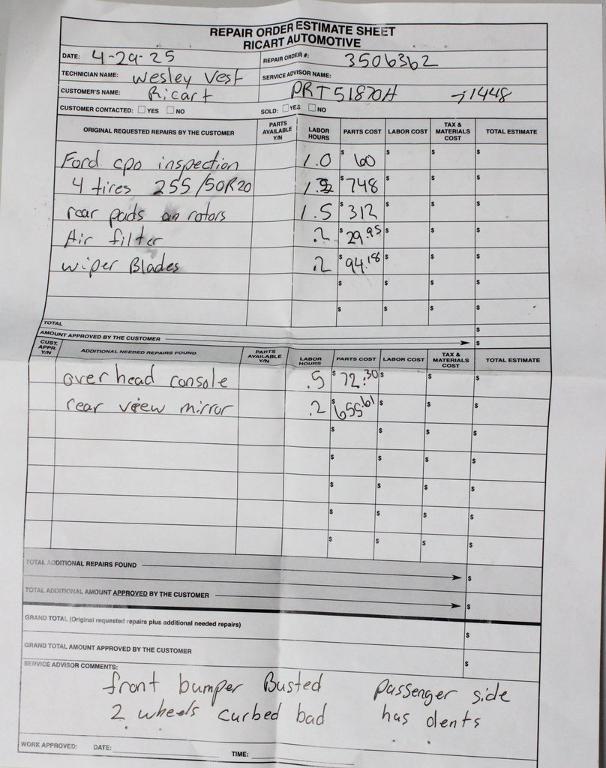 REPAIR ORDER ESTIMATE SHEET
RICART AUTOMOTIVE
DATE: 4-29-25 REPAIR ORDER #: 3506362
TECHNICIAN NAME: Wesley Vest SERVICE ADVISOR NAME:
CUSTOMER'S NAME: Ricart PRT51870H -71448
CUSTOMER CONTACTED: YES NO SOLD: YES NO
ORIGINAL REQUESTED REPAIRS BY THE CUSTOMER PARTS AVAILABLE Y/N LABOR HOURS PARTS COST LABOR COST TAX & MATERIALS COST TOTAL ESTIMATE
Ford cpo inspection 1.0 $ 60 $ $ $
4 tires 255/50R20 1. $ 748 $ $ $
rear pads an rotors 1.5 $ 312 $ $ $
Air filter .2 $ 29.95 $ $ $
wiper Blades .2 $ 94.18 $ $ $
$ $ $ $
$ $ $ $
TOTAL $
AMOUNT APPROVED BY THE CUSTOMER $
CUST. APPR. Y/N ADDITIONAL NEEDED REPAIRS FOUND PARTS AVAILABLE Y/N LABOR HOURS PARTS COST LABOR COST TAX & MATERIALS COST TOTAL ESTIMATE
over head console .5 $ 72.30 $ $ $
rear view mirror .2 $ 655.61 $ $ $
$ $ $ $
$ $ $ $
$ $ $ $
$ $ $ $
$ $ $ $
TOTAL ADDITIONAL REPAIRS FOUND $
TOTAL ADDITIONAL AMOUNT APPROVED BY THE CUSTOMER $
GRAND TOTAL (Original requested repairs plus additional needed repairs) $
GRAND TOTAL AMOUNT APPROVED BY THE CUSTOMER $
SERVICE ADVISOR COMMENTS:
front bumper Busted passenger side
2 wheels curbed bad has dents
WORK APPROVED: DATE: TIME: